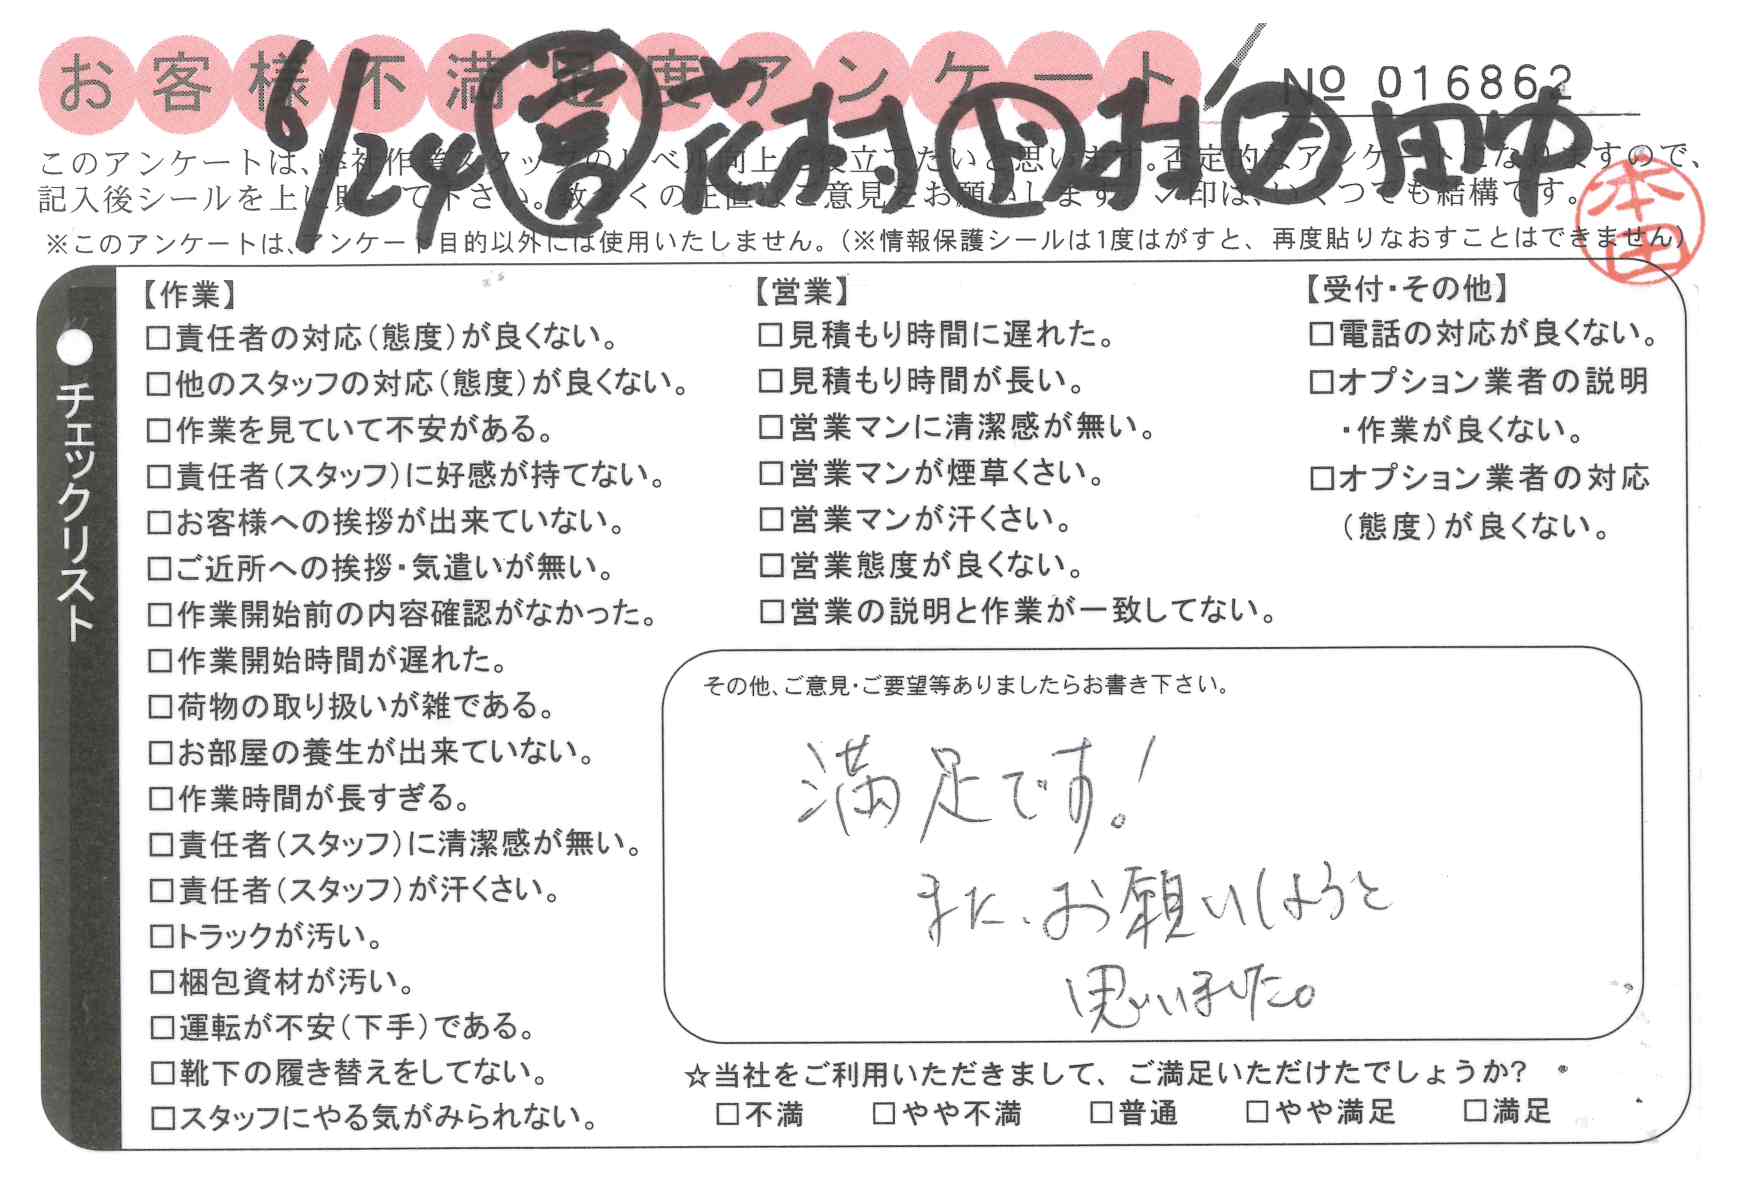 お客様不満足度アンケート
№ 016862
6/24 営 花村 ド 村 田中
このアンケートは、弊社作業スタッフのレベル向上に役立てたいと思います。否定的なアンケートになりますので、
記入後シールを上に貼って下さい。数多くの正直なご意見をお願いします。✓印は、いくつでも結構です。
※このアンケートは、アンケート目的以外には使用いたしません。(※情報保護シールは1度はがすと、再度貼りなおすことはできません)
本田
●チェックリスト
【作業】
□責任者の対応(態度)が良くない。
□他のスタッフの対応(態度)が良くない。
□作業を見ていて不安がある。
□責任者(スタッフ)に好感が持てない。
□お客様への挨拶が出来ていない。
□ご近所への挨拶・気遣いが無い。
□作業開始前の内容確認がなかった。
□作業開始時間が遅れた。
□荷物の取り扱いが雑である。
□お部屋の養生が出来ていない。
□作業時間が長すぎる。
□責任者(スタッフ)に清潔感が無い。
□責任者(スタッフ)が汗くさい。
□トラックが汚い。
□梱包資材が汚い。
□運転が不安(下手)である。
□靴下の履き替えをしてない。
□スタッフにやる気がみられない。
【営業】
□見積もり時間に遅れた。
□見積もり時間が長い。
□営業マンに清潔感が無い。
□営業マンが煙草くさい。
□営業マンが汗くさい。
□営業態度が良くない。
□営業の説明と作業が一致してない。
【受付・その他】
□電話の対応が良くない。
□オプション業者の説明
・作業が良くない。
□オプション業者の対応
(態度)が良くない。
その他、ご意見・ご要望等ありましたらお書き下さい。
満足です!
また、お願いしようと
思いました。
☆当社をご利用いただきまして、ご満足いただけたでしょうか?
□不満 □やや不満 □普通 □やや満足 □満足